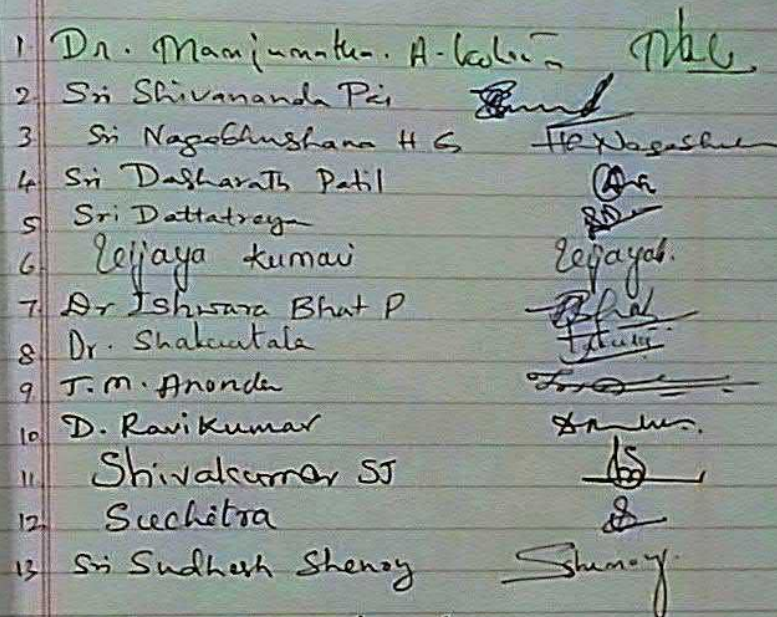 1. Dr. Manjunatha. A.
2. Sri Shivananda Pai
3 Sri Nagabhushana H G
4 Sri Dasharath Patil
5 Sri Dattatreya
6. Vijaya Kumari Vijayak.
7. Dr Ishwara Bhat P
8 Dr. Shakuntala
9 T.M. Ananda
10 D. Ravi Kumar
11. Shivakumar SJ
12. Suchitra
13 Sri Sudhesh Shenoy Shenoy.